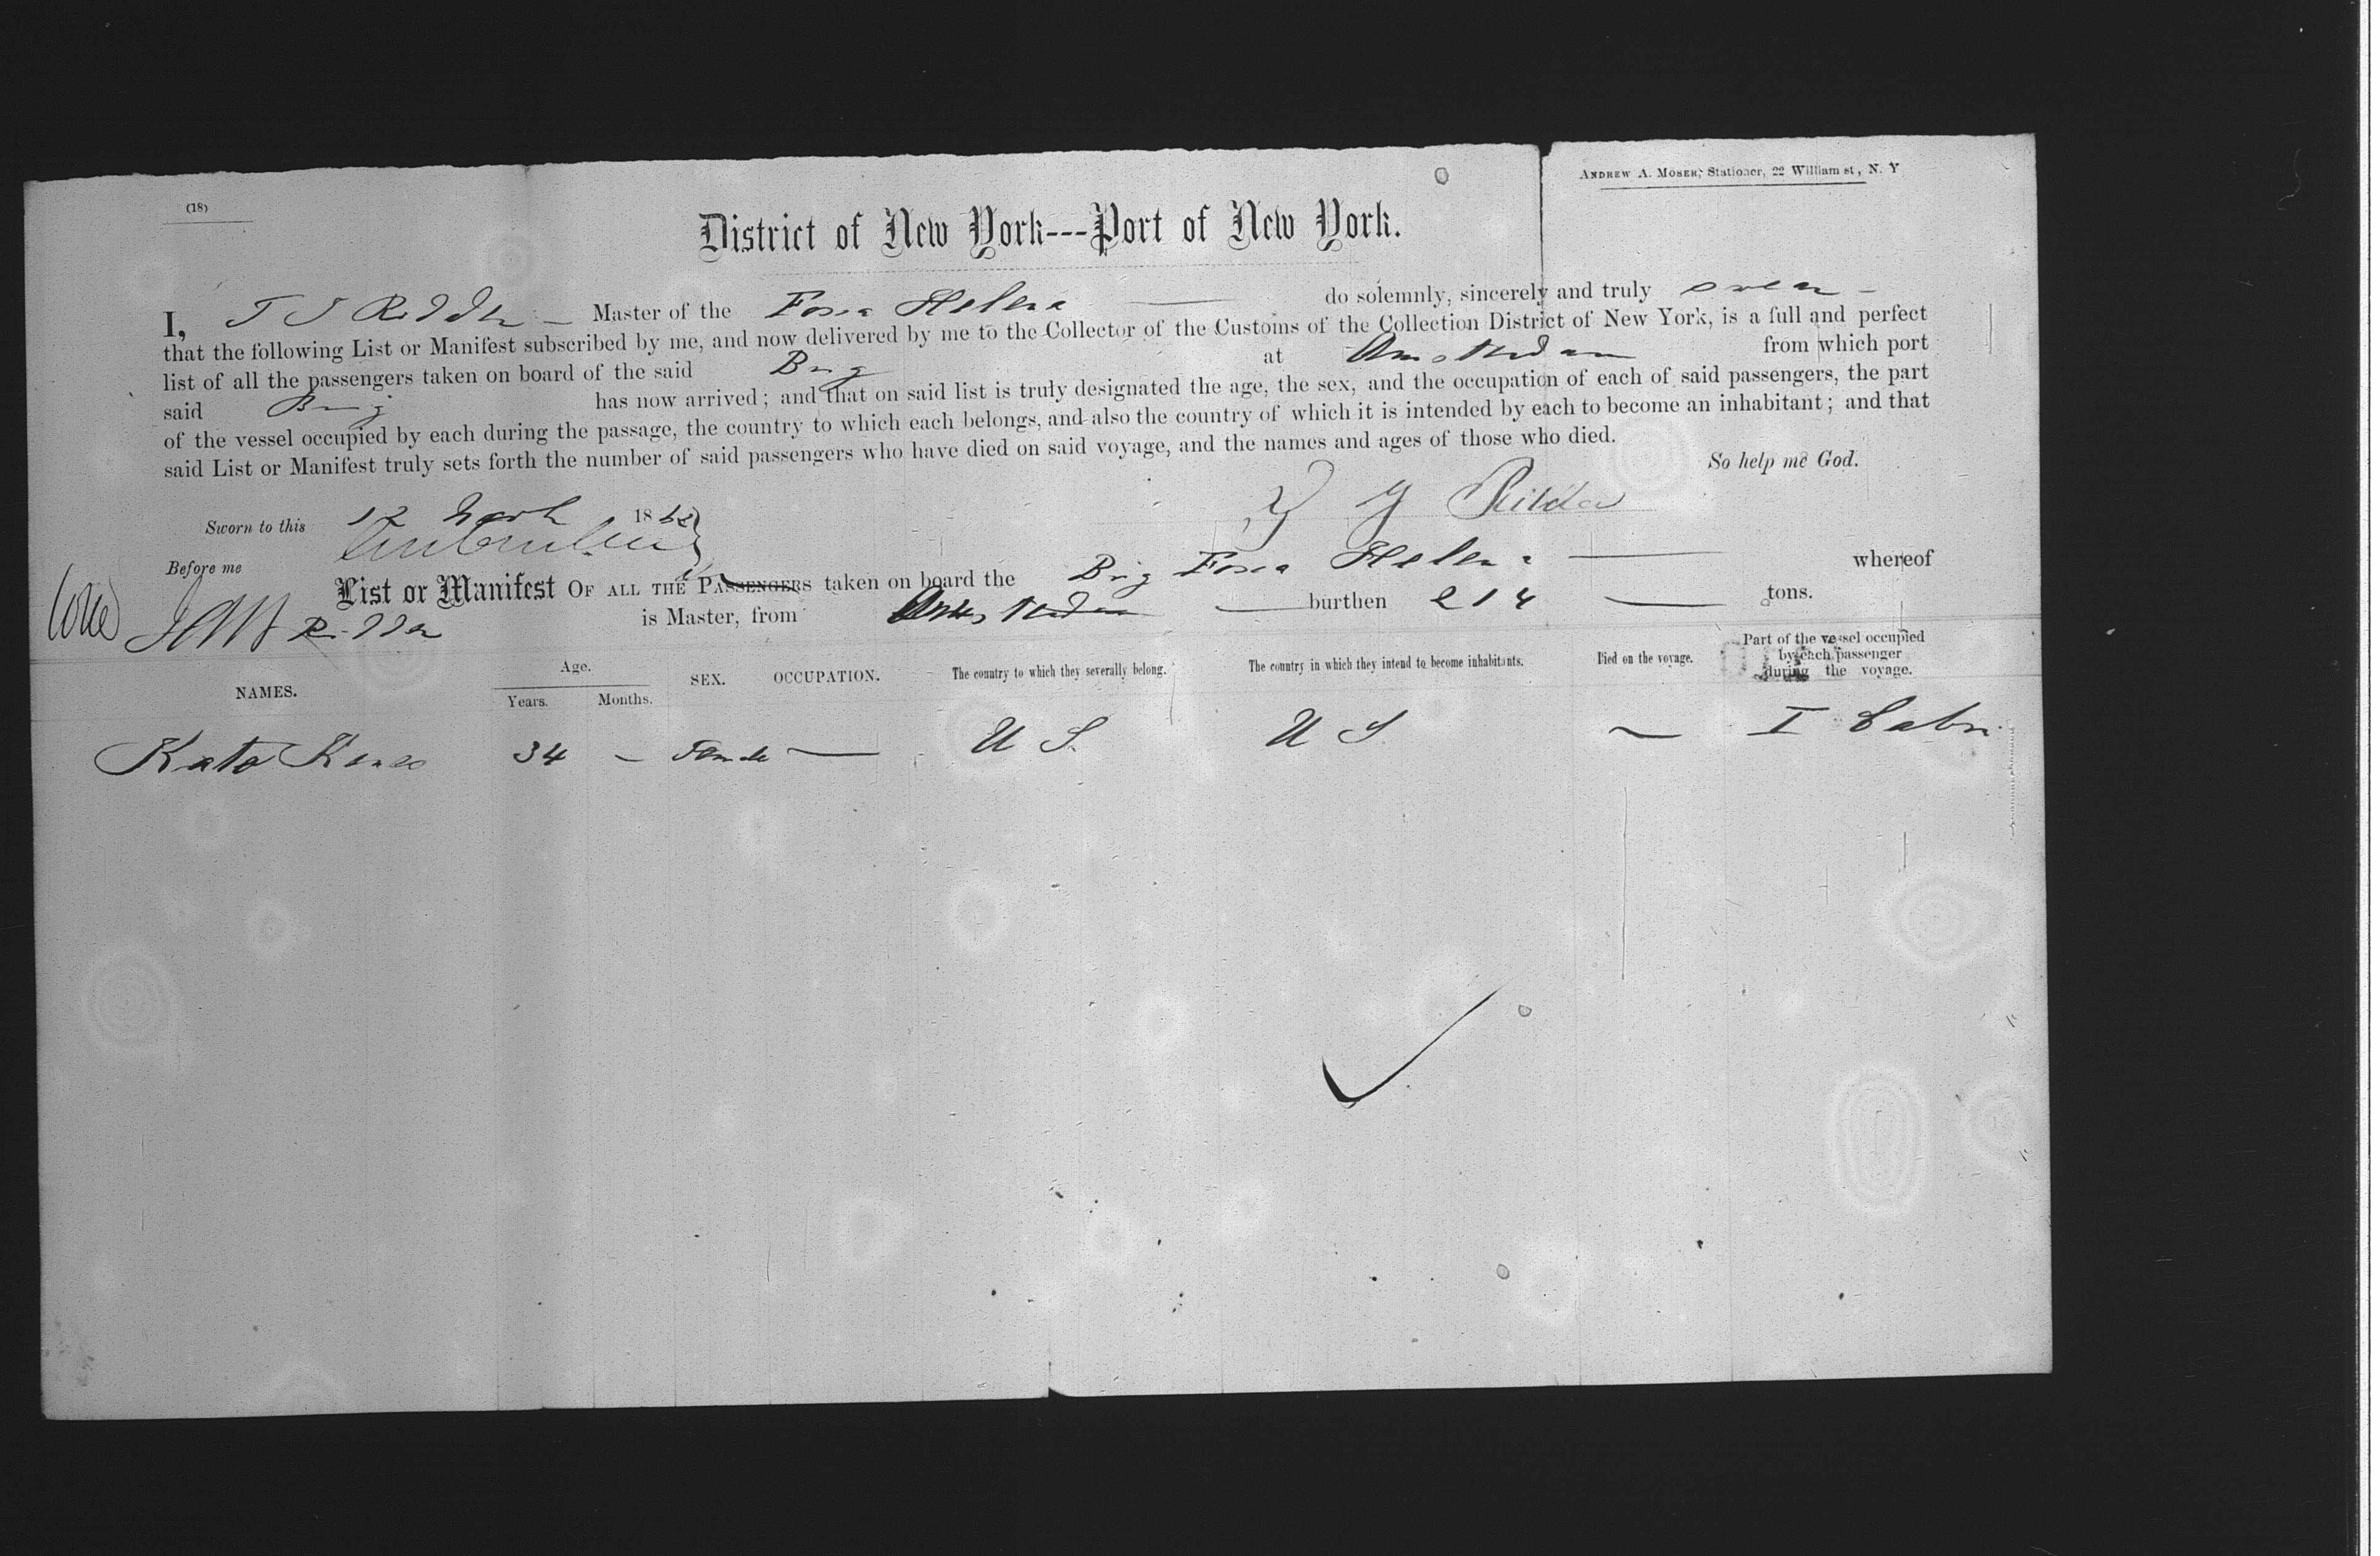 (18)
ANDREW A. MOSER, Stationer, 22 William st, N. Y
District of New York---Port of New York.
I, Master of the Helena do solemnly, sincerely and truly swear
that the following List or Manifest subscribed by me, and now delivered by me to the Collector of the Customs of the Collection District of New York, is a full and perfect
list of all the passengers taken on board of the said Brig at Amsterdam from which port
said Brig has now arrived; and that on said list is truly designated the age, the sex, and the occupation of each of said passengers, the part
of the vessel occupied by each during the passage, the country to which each belongs, and also the country of which it is intended by each to become an inhabitant; and that
said List or Manifest truly sets forth the number of said passengers who have died on said voyage, and the names and ages of those who died.
So help me God.
Sworn to this 12 18
Before me
List or Manifest OF ALL THE PASSENGERS taken on board the Brig Helena whereof
is Master, from Amsterdam burthen 214 tons.
NAMES. Age. Years. Months. SEX. OCCUPATION. The country to which they severally belong. The country in which they intend to become inhabitants. Died on the voyage. Part of the vessel occupied by each passenger during the voyage.
Kate 34 — Female — U S. U S — I Cabin